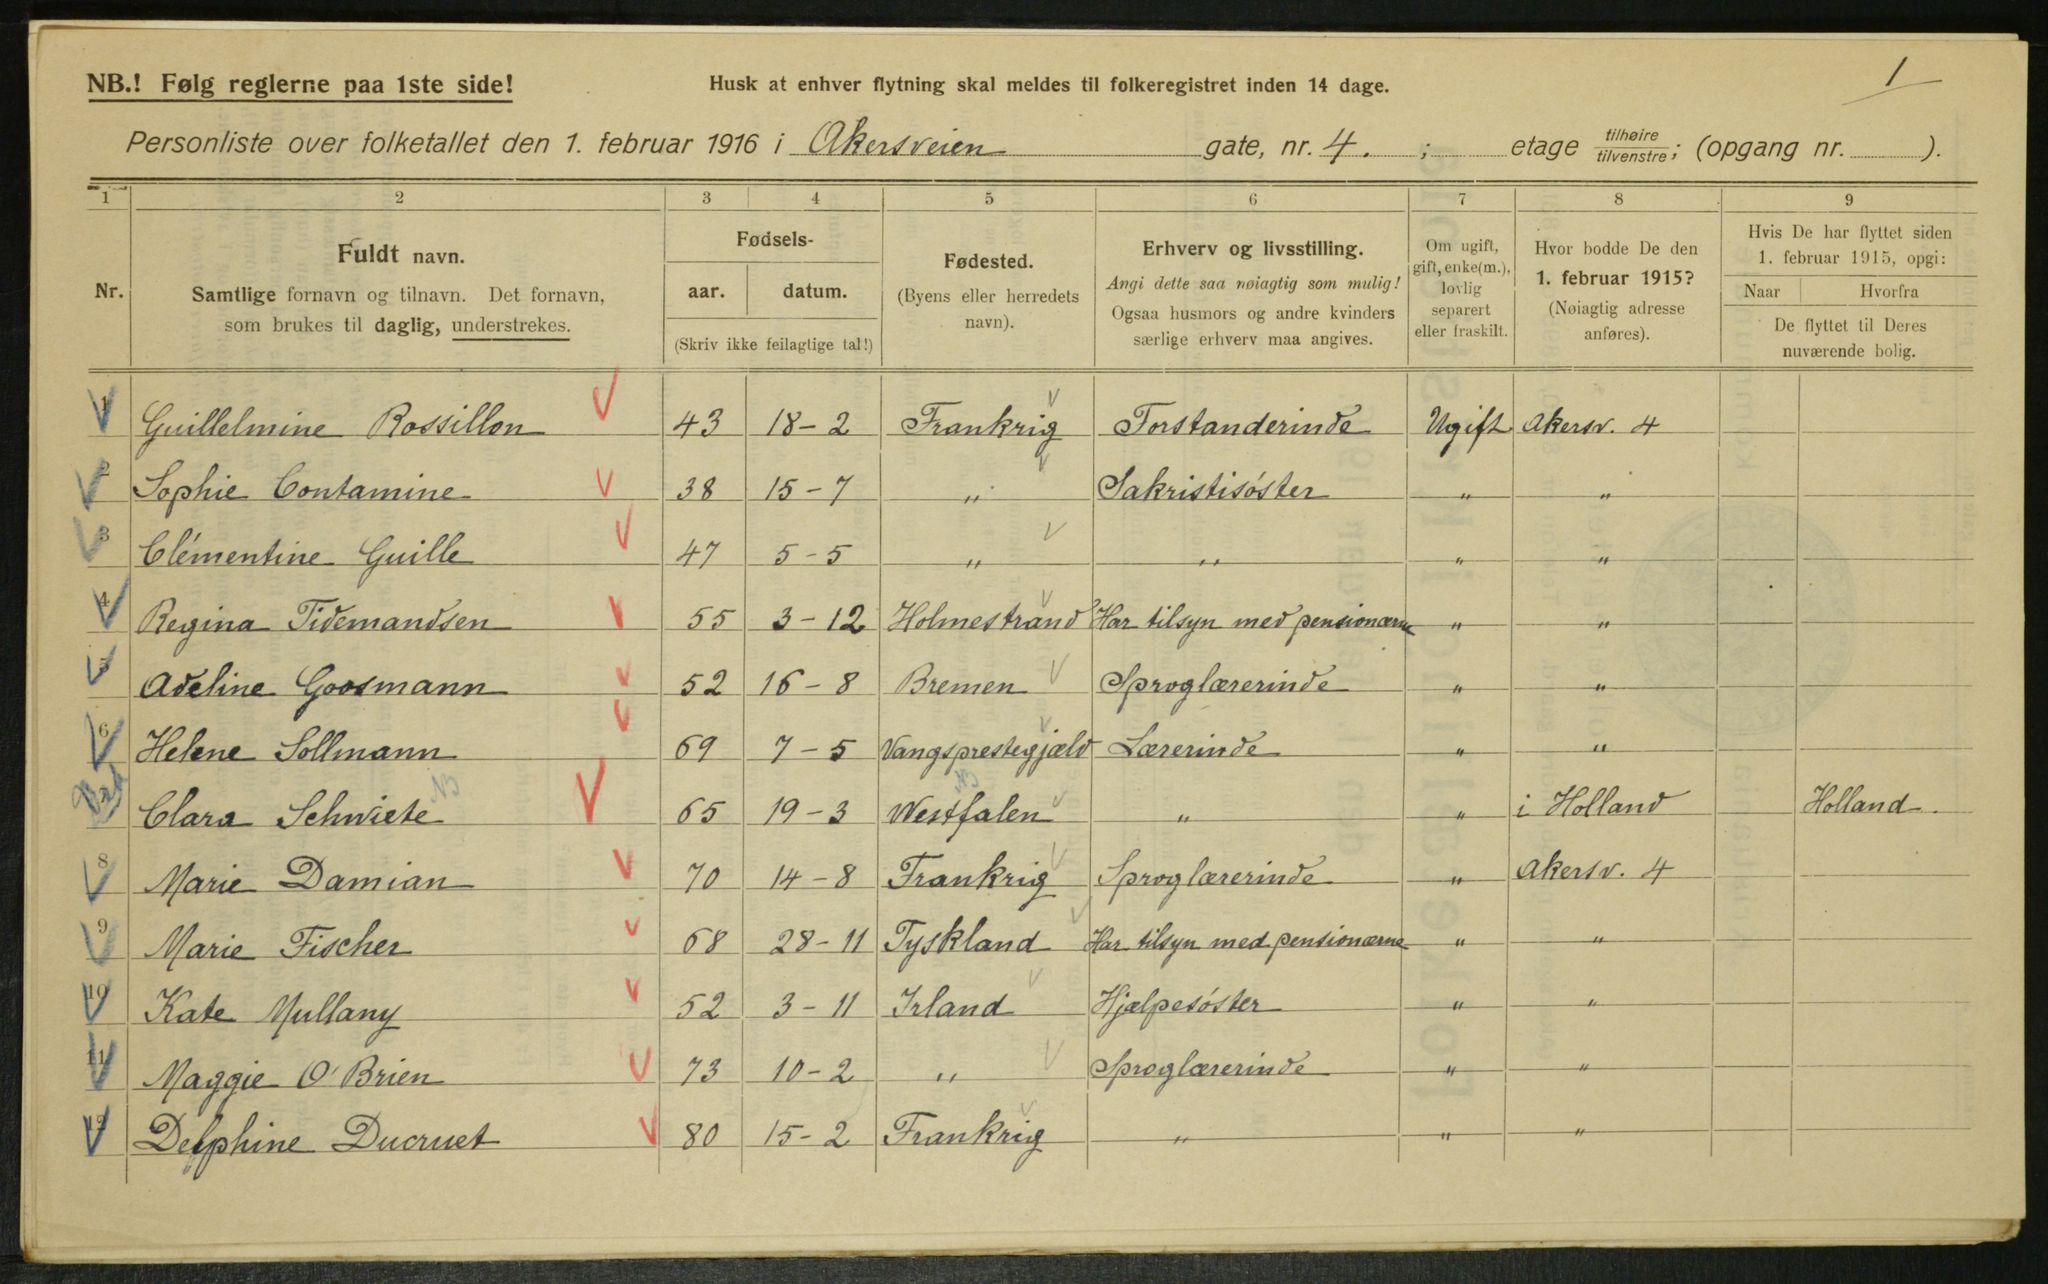 1
NB.! Følg reglerne paa 1ste side!
Husk at enhver flytning skal meldes til folkeregistret inden 14 dage.
Personliste over folketallet den 1. februar 1916 i Akersveien gate, nr. 4. ; etage tilhøire/tilvenstre; (opgang nr. ).
1 2 3 4 5 6 7 8 9
Nr.
Fuldt navn.
Samtlige fornavn og tilnavn. Det fornavn,
som brukes til daglig, understrekes.
Fødsels-
aar. datum.
(Skriv ikke feilagtige tal!)
Fødested.
(Byens eller herredets
navn).
Erhverv og livsstilling.
Angi dette saa nøiagtig som mulig!
Ogsaa husmors og andre kvinders
særlige erhverv maa angives.
Om ugift,
gift, enke(m.),
lovlig
separert
eller fraskilt.
Hvor bodde De den
1. februar 1915?
(Nøiagtig adresse
anføres).
Hvis De har flyttet siden
1. februar 1915, opgi:
Naar Hvorfra
De flyttet til Deres
nuværende bolig.
1 Guillelmine Rossillon 43 18-2 Frankrig Forstanderinde Ugift Akersv. 4
2 Sophie Contamine 38 15-7 " Sakristisøster " "
3 Clémentine Guille 47 5-5 " " " "
4 Regina Tidemandsen 55 3-12 Holmestrand Har tilsyn med pensionærne " "
5 Adeline Goosmann 52 16-8 Bremen Sproglærerinde " "
6 Helene Sollmann 69 7-5 Vangsprestegjæld Lærerinde " "
Clara Schwiete NB 65 19-3 Westfalen NB " " i Holland Holland.
8 Marie Damian 70 14-8 Frankrig Sproglærerinde " Akersv. 4
9 Marie Fischer 68 28-11 Tyskland Har tilsyn med pensionærne " "
10 Kate Mullany 52 3-11 Irland Hjælpesøster " "
11 Maggie O'Brien 73 10-2 " Sproglærerinde " "
12 Delphine Ducruet 80 15-2 Frankrig " " "